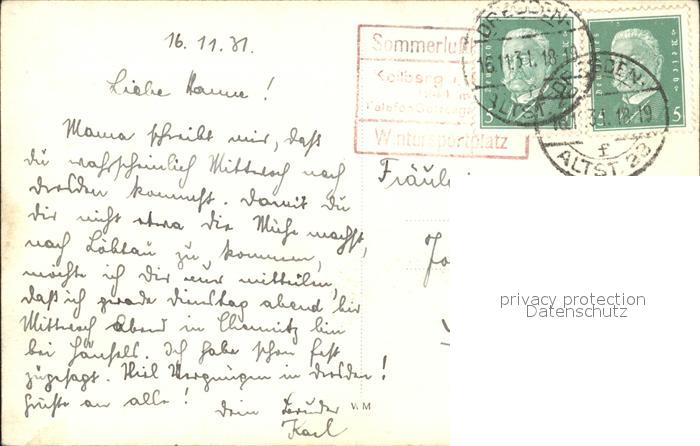 16.11.31.
Liebe Hanne!
Mama schreibt mir, daß
du wahrscheinlich Mittwoch nach
Dresden kommst. Damit du
dir nicht etwa die Mühe machst,
nach Löbtau zu kommen,
möchte ich dir nur mitteilen,
daß ich gerade Dienstag abend bis
Mittwoch Abend in Chemnitz bin
bei Hänsels. Ich habe schon fest
zugesagt. Viel Vergnügen in Dresden!
Grüße an alle!
Dein Bruder
Karl
V. M
Sommerluf
Wintersportplatz
DRESDEN-
16.11.31.18-19
ALTST. 23
5
DRESDEN-
31.18-19
ALTST. 23
f
5
5
Fräul
privacy protection
Datenschutz